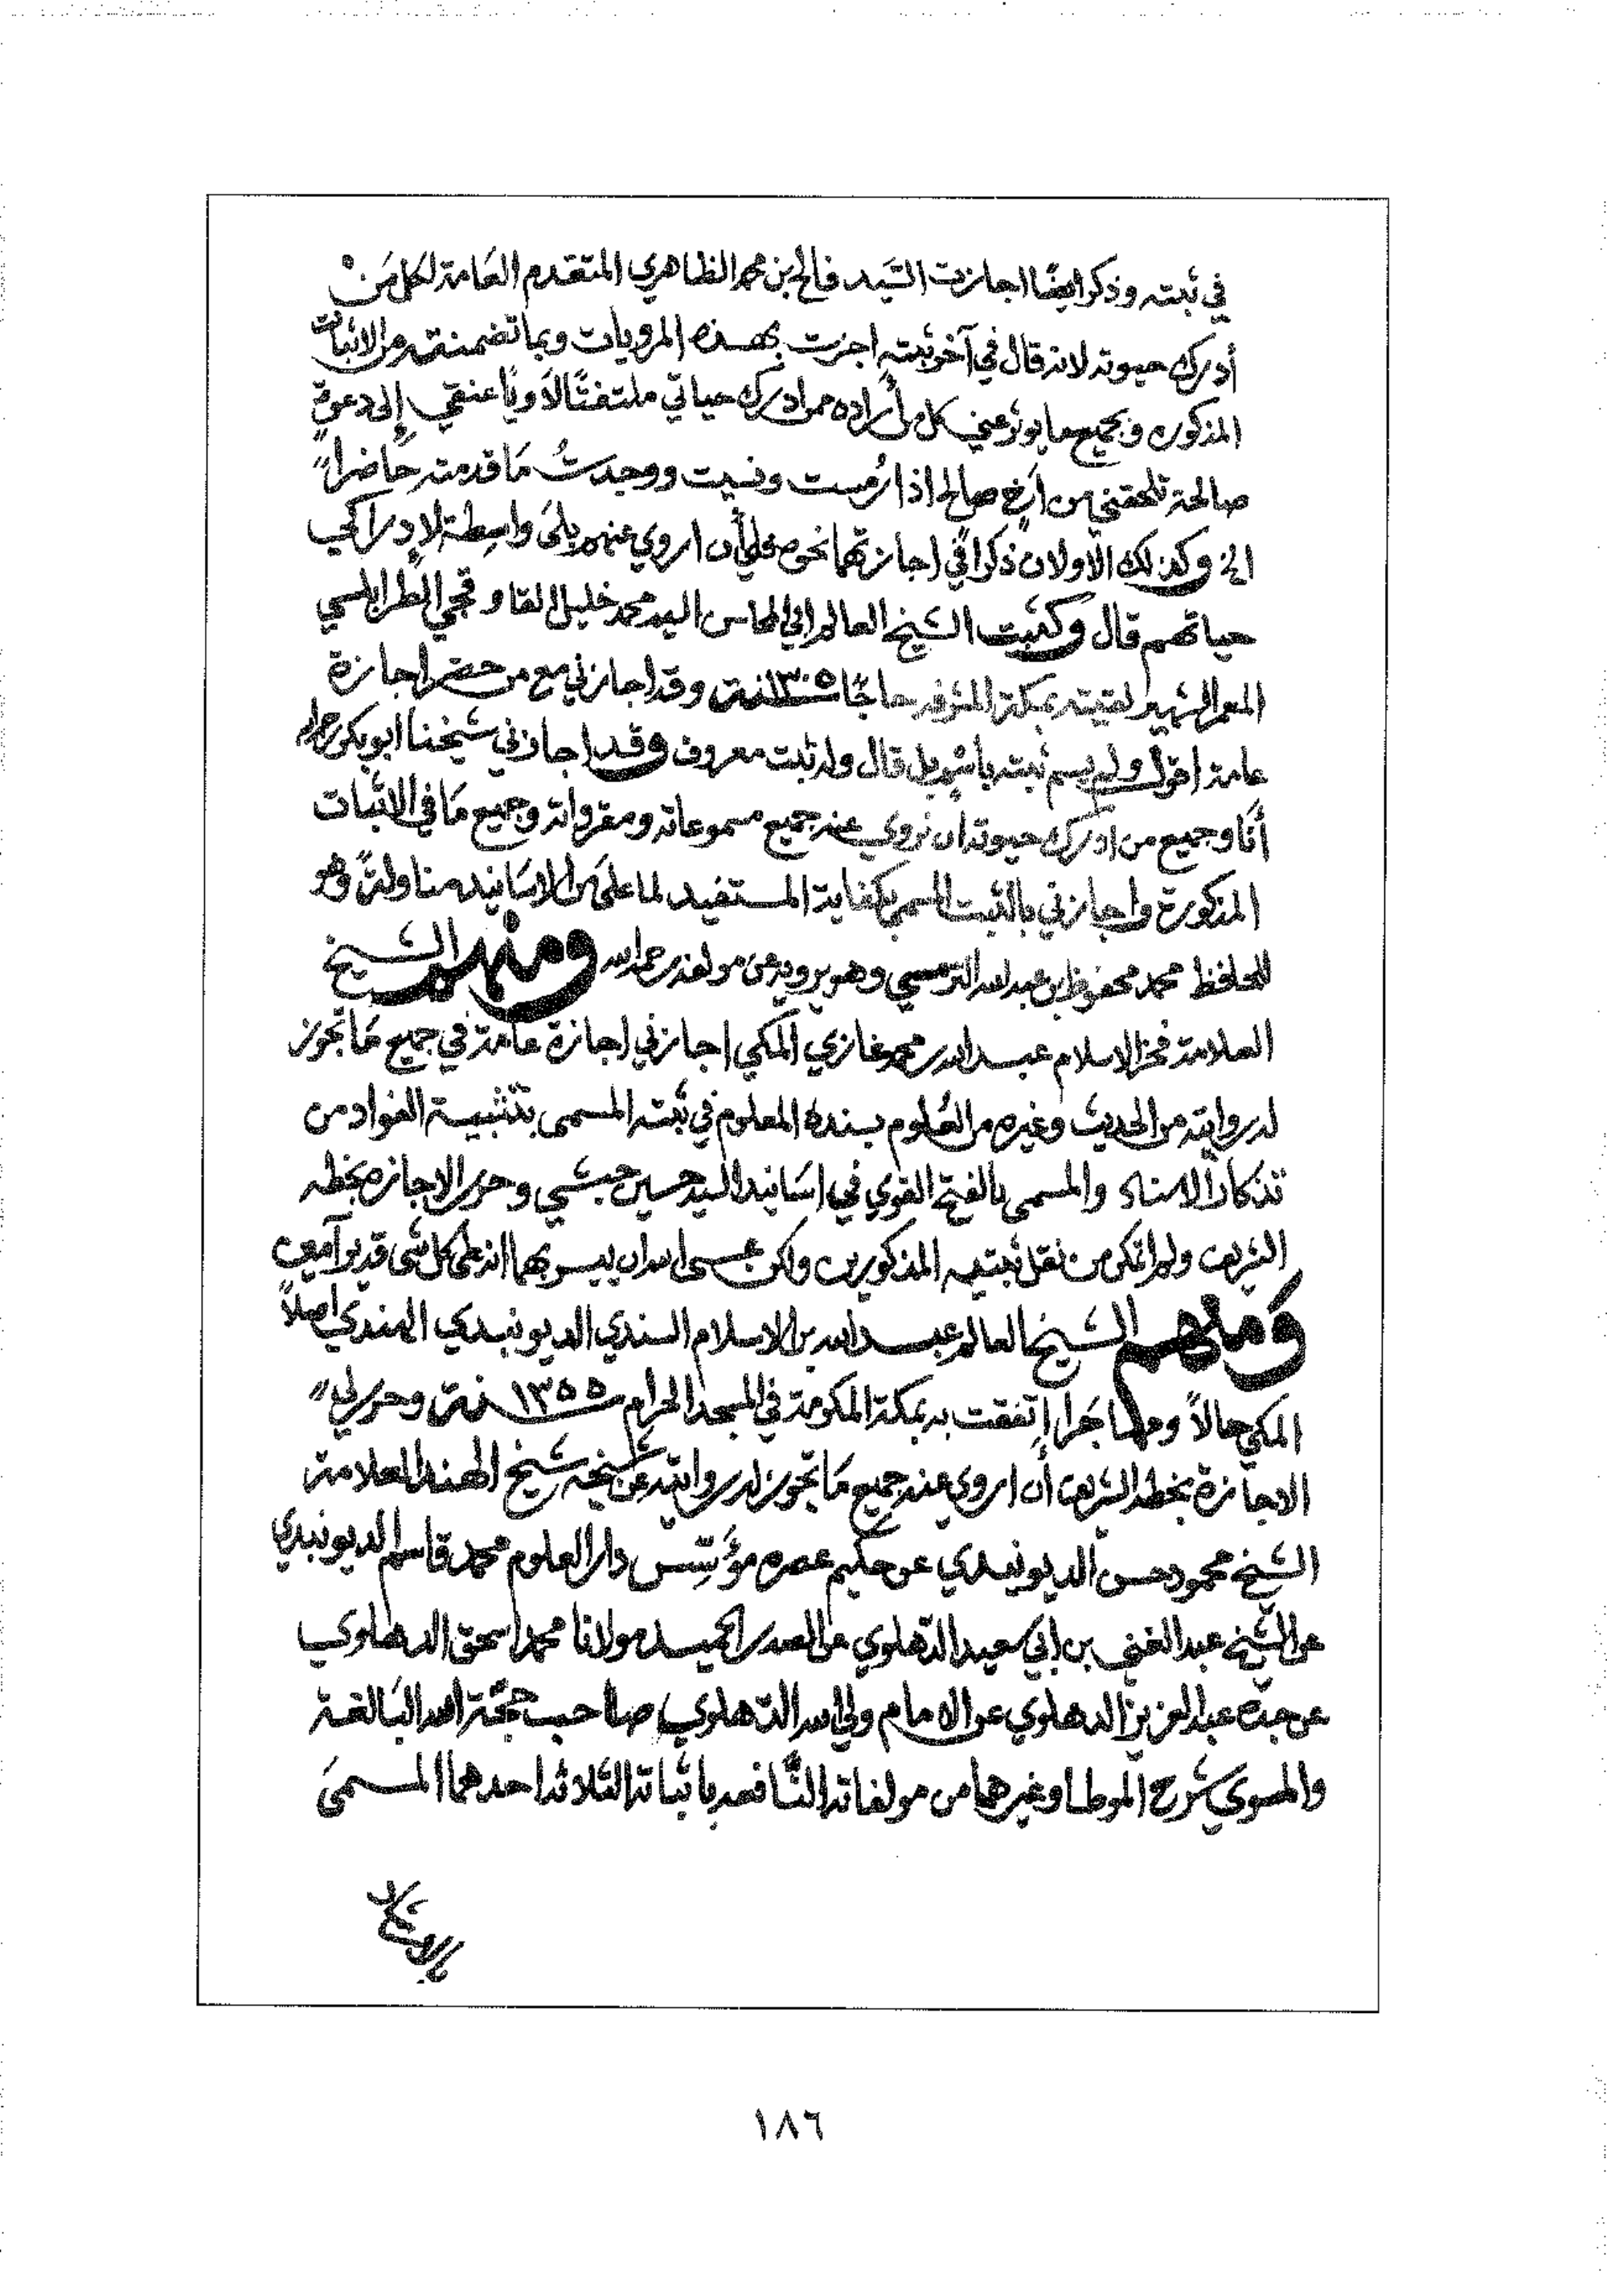 في ثبته وذكر ايضًا اجازت السَّيد فالح بن محمد الظاهري المتقدم العَامة لكل مَن
أدرك حيوته لانه قال في آخر ثبته اجزت بهذه المرويات وبما تضمنته من الاثبات
المذكوره وبجميع ما يوثر عني كل من أراده ممن ادرك حياتي ملتفتًا لاويًا عنقي إلى دعوةٍ
صالحة تلحقني من اخ صالح اذا رُمست ونسيت ووجدتُ مَا قدمته حَاضراً
الخ وكذلك الأولان ذكرا في اجازتهما نحوه فلي أن اروي عنهم بلا واسِطة لإدراكي
حياتهم قال وكثبت الشيخ العالم ابي المحاسن السيد محمد خليل القاوقجي الطرابلسي
المعمر الشهير لقيته بمكة المشرفه حاجًا ١٣٠٥ سنة وقد اجازني مع من حضر اجازة
عامة اقول ولم يسم ثبته باسْم بل قال وله ثبت معروف وقد اجازني شيخنا ابو بكر رحمه الله
أنَا وجميع من ادرك حيوته ان نروي عنه جميع مسموعاته ومقرواته وجميع مَا في الاثبات
المذكورة واجازني بالثبت المسمى بكفاية المستفيد لما علىَ من الاسَانيد مناولةً وهو
للحافظ محمد محفوظ بن عبد الله الترمسي وهو يرويه عن مولفه رحمه الله ومنهم الشيخ
العلامة فخر الاسلام عبد الله بن محمد غازي المكي اجازني اجازة عامة في جميع مَا تجوز
له روايته من الحديث وغيره من العُلوم بسنده المعلوم في ثبته المسمى بتنثبيت الفواد من
تذكار الاسناد والمسمى بالفتح القوي في اسَانيد السيد حسين حبشي وحرر الاجازه بخطه
الشريف ولم اتمكن من نقل ثبتيه المذكورين ولكن عسى الله ان ييسر بهما انه على كل شى قدير آمين
ومنهم الشيخ العالم عبد الله بن الاسلام السندي الديونبدي الهندي اصلاً
المكي حالاً ومهاجَرا إتفقت به بمكة المكرمة في المسجد الحرام ١٣٥٥ سنة وحرر لي
الاجازة بخطه الشريف أن اروي عنه جميع مَا تجوز له روايته عن شيخه شيخ الهند العلامة
الشيخ محمود حسن الديونبدي عن حكيم عصره مؤسِّس دار العلوم محمد قاسم الديونبدي
عن الشيخ عبد الغني بن ابي سعيد الدهلوي عن الصدر الحميد مولانا محمد اسحق الدهلوي
عن جده عبد العزيز الدهلوي عن الامام ولي الله الدهلوي صاحب حجة الله البَالغة
والمسوي شرح الموطا وغيرهما من مولفاته النافعه باثباته الثلاثه احدهما المسمىَ
١٨٦